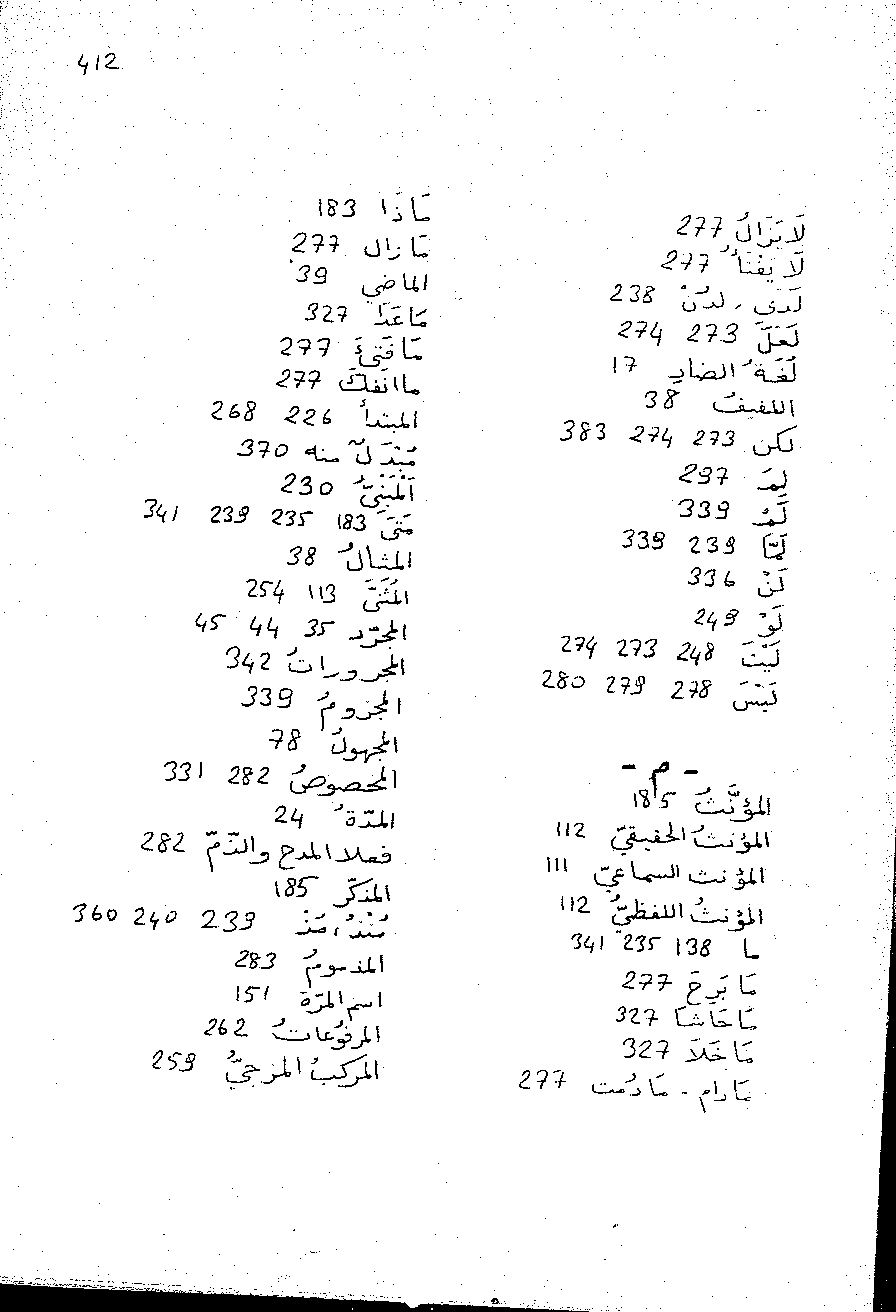 412
لَا يَزَالُ 277
لَا يَفْتَأُ 277
لَدَى ، لدُنْ 238
لَعَلَّ 273 274
لُغَةُ الضادِ 17
اللفيفُ 38
لكن 273 274 383
لِمَ 297
لَمْ 339
لَمَّا 239 339
لَنْ 336
لَوْ 249
لَيْتَ 248 273 274
لَيْسَ 278 279 280
- م -
المؤنَّثُ 185
المؤنثُ الحقيقيّ 112
المؤنث السماعيّ 111
المؤنثُ اللفظيُّ 112
ما 138 235 341
مَا بَرِحَ 277
مَا حَاشَا 327
مَا خَلَا 327
مَا دام - مَا دُمت 277
مَاذَا 183
مَا زال 277
الماضي 39
مَا عَدَا 327
مَا فَتِئَ 277
ما انفكَ 277
المبتدأ 226 268
مُبْدَلٌ منه 370
اَلْمَبْنِيُّ 230
مَتَى 183 235 239 341
المثالُ 38
المُثَنَّى 113 254
المجرّد 35 44 45
المجروراتُ 342
المجزومُ 339
المجهولُ 78
المخصوصُ 282 331
المدّةُ 24
فعلا المدح والذّمّ 282
المذكّر 185
مُنْذُ ، مُذْ 239 240 360
المذمومُ 283
اسم المرّة 151
المرفُوعاتُ 262
المركبُ المزجيُّ 259